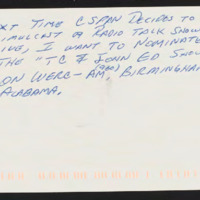 EXT TIME CSPAN DECIDES TO
IMULCAST A RADIO TALK SHOW
IVE, I WANT TO NOMINATE
THE "TC & JOHN ED SHOW
ON WERC-AM, BIRMINGHAM
ALABAMA.